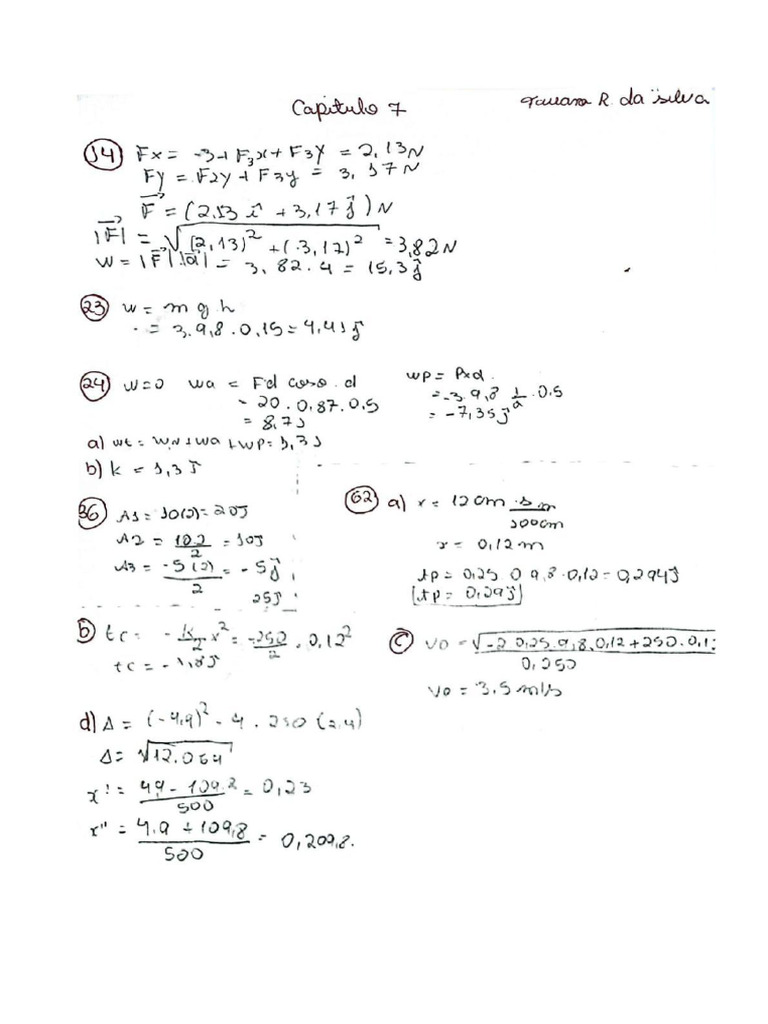 Capitulo 7
R. da silva
14 Fx = -3 + F3x + F3y = 2,13N
Fy = F2y + F3y = 3,17N
F = (2,13 î + 3,17 ĵ) N
|F| = √(2,13)² + (3,17)² = 3,82N
W = |F|.|d| = 3,82.4 = 15,3J
23 W = m g h
= 3.9,8.0,15 = 4,41J
24 W=0 wa = Fd coso.d
= 20.0,87.0,5
= 8,7J
wp = Pxd.
= -3.9,8 1/2 .0,5
= -7,35J
a) wt = WN + wa + wp = 1,3J
b) k = 1,3J
36 A1 = 10(2) = 20J
A2 = 10.2/2 = 10J
A3 = -5(2)/2 = -5J
25J
62 a) x = 12cm .1m/100cm
x = 0,12m
tp = 0,25 0 9,8.0,12 = 0,294J
tp = 0,29J
b) tc = -k/2 x² = -250/2 . 0,12²
tc = -1,8J
c) vo = √-2 0,25.9,8.0,12 + 250.0,1
0,250
vo = 3,5m/s
d) Δ = (-4,9)² - 4.250(2,4)
Δ = √12.064
x' = 4,9 - 109,2/500 = 0,23
x'' = 4,9 + 109,8/500 = 0,209,8.